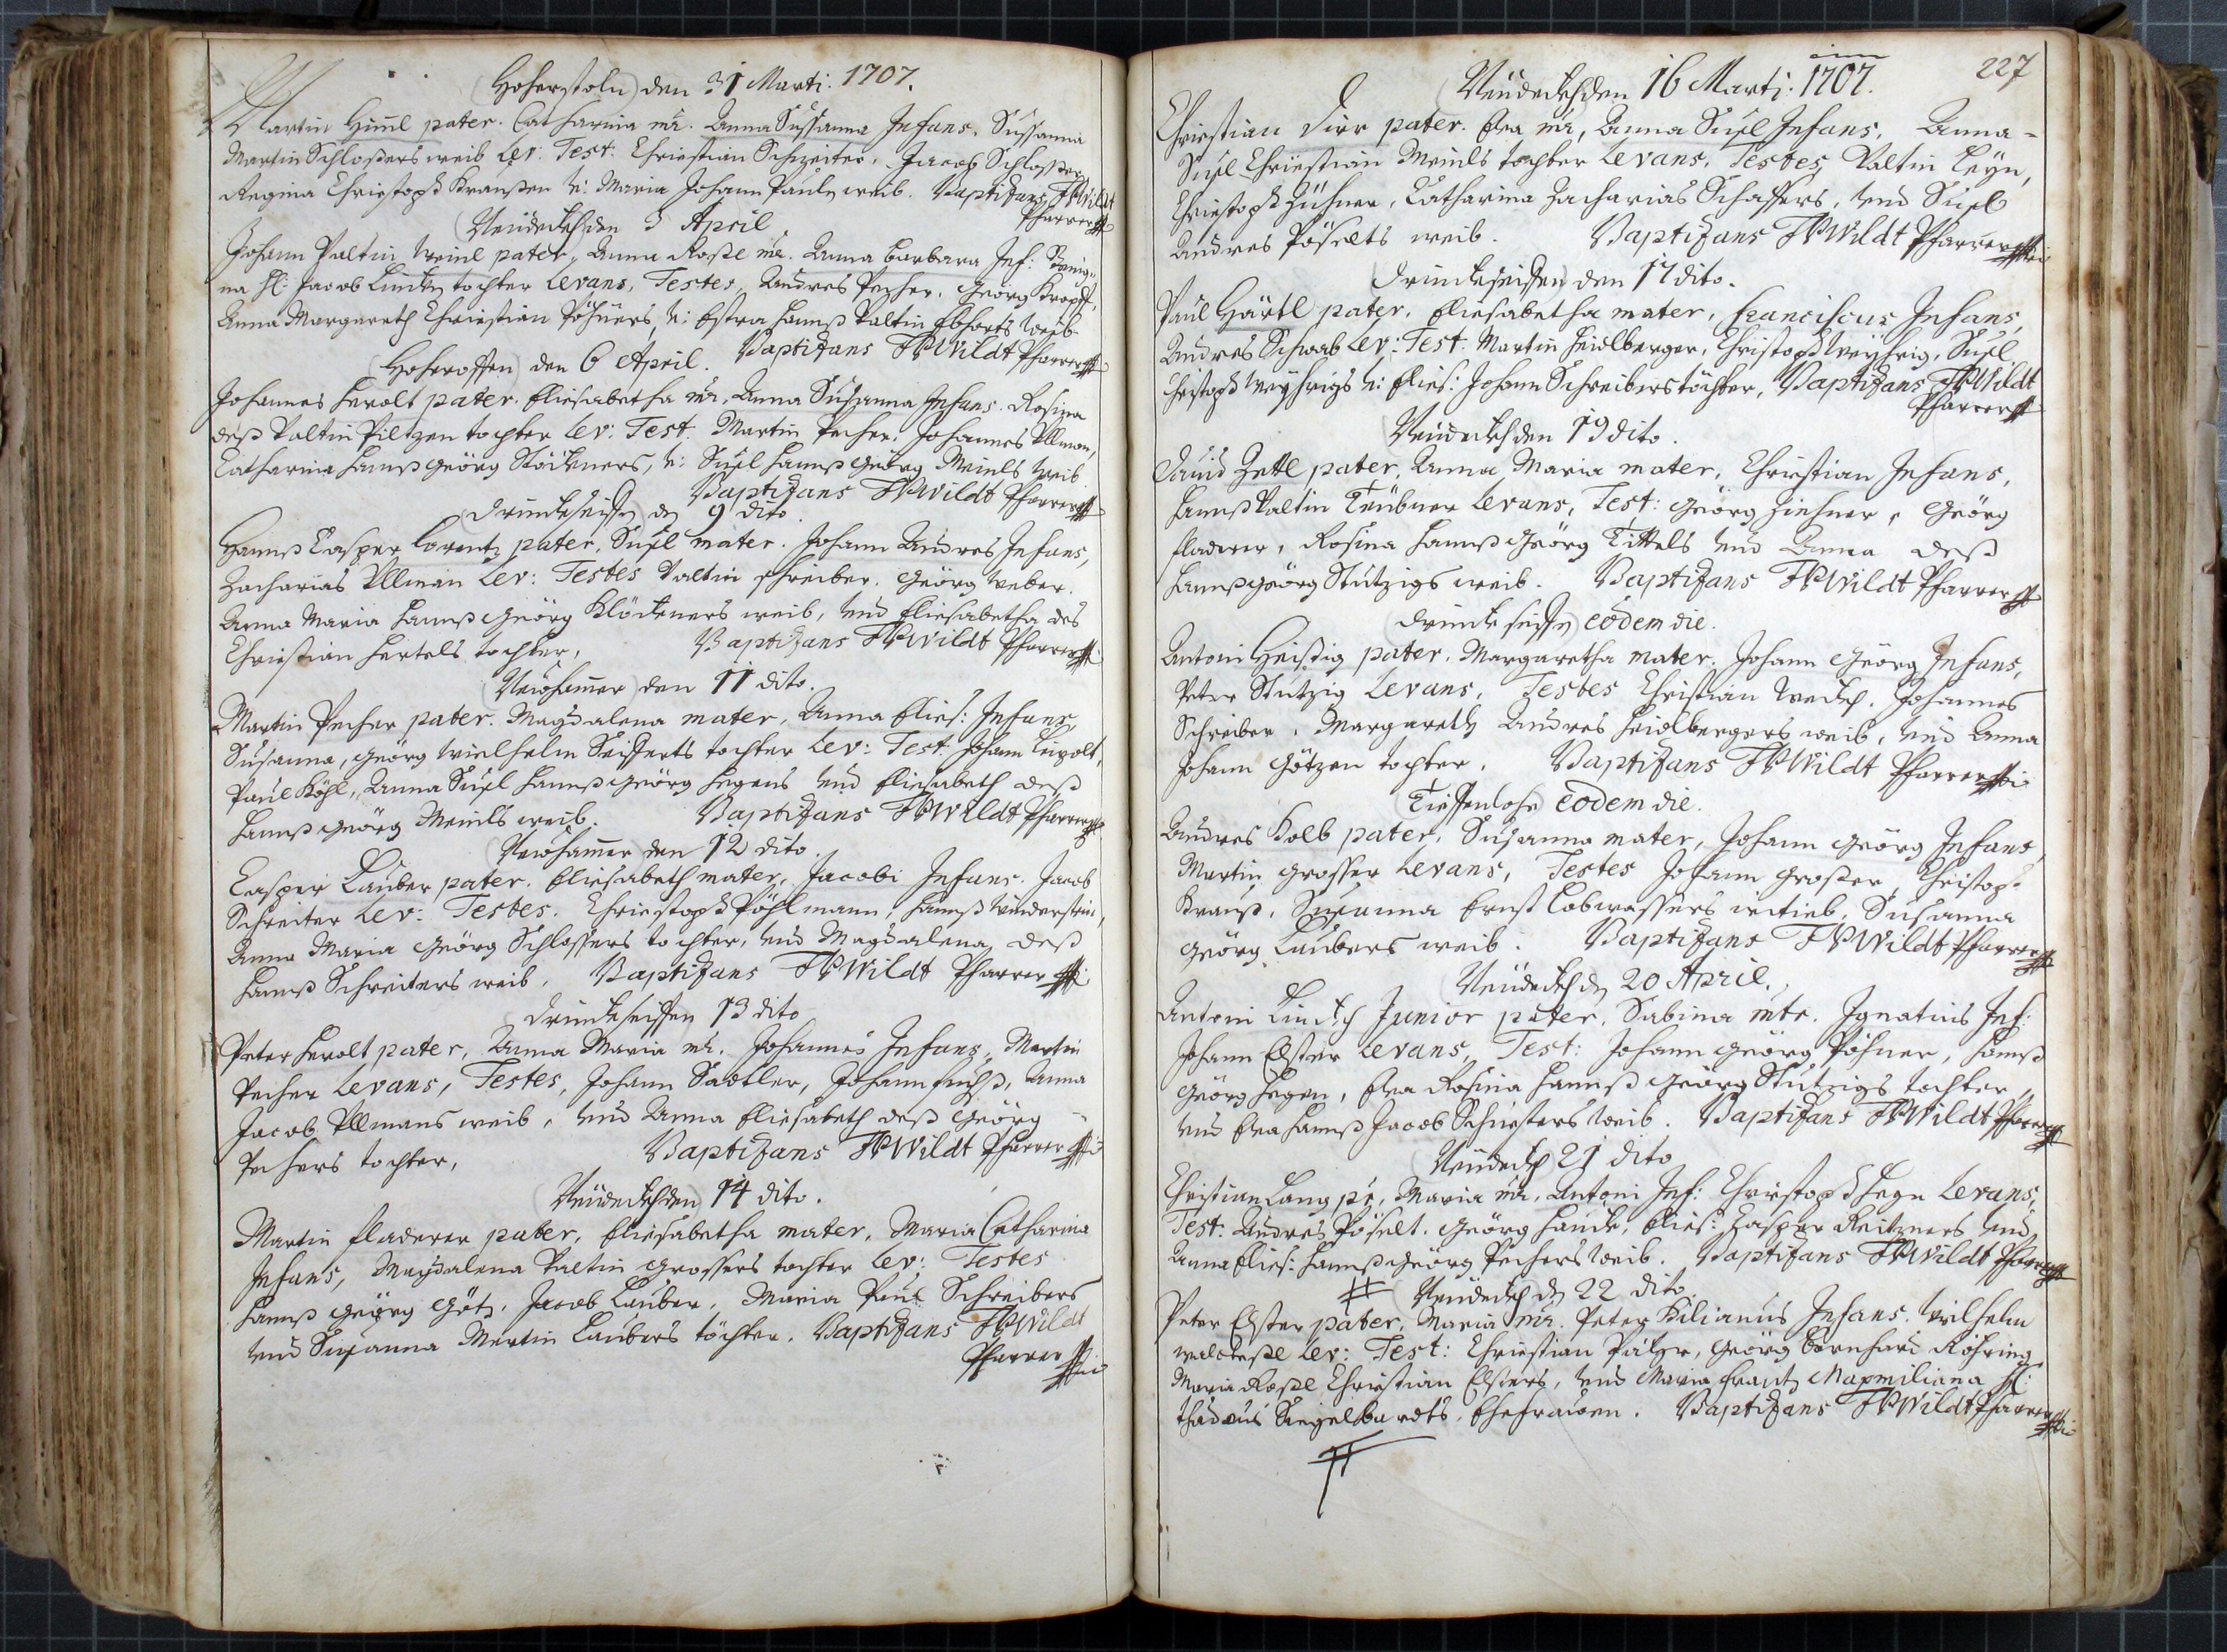 Hoherstoln den 31 Marti: 1707.
Martin Himl pater. Catharina mr. Anna Sussanna Infans. Sussanna
Martin Schlossers weib Lev: Test: Christian Schreiter, Jacob Schlosser
Regina Christoph Kraussen v: Maria Johann Pauls weib. Baptizans FPWildt
Pfarrer
Neüdeckh den 3 April
Johann Valtin Meinl pater, Anna Rosle mr. Anna Barbara Inf:
na H: Jacob Linckn tochter Levans, Testes, Andres Pecher, Georg Kropff,
Anna Margareth Christian Pöhners, v: Hannß Valtin weib
Baptizans FPWildt Pfarrer
Hoheroffen den 6 April.
Johannes Herolt pater. Eliesabetha mr, Anna Susanna Infans. Rosina
deß Valtin Piltzen tochter Lev: Test. Martin Pecher, Johannes Ullman,
Catharina Hannß Geörg Stöckners, v: Susl Hannß Geörg Meinls weib
Baptizans FPWildt Pfarrer
Drinckseiffen den 9 dito.
Hannß Casper Lorentz pater, Susl mater. Johann Andres Infans,
Zacharias Ullman Lev: Testes Valtin Schreiber. Geörg Weber.
Anna Maria Hannß Geörg Klöckners weib, und Eliesabetha des
Christian Hertels tochter, Baptizans FPWildt Pfarrer
Neühamer den 11 dito.
Martin Pecher pater. Magdalena mater, Anna Elies: Infans,
Susanna, Geörg Wielhelm Seifferts tochter Lev: Test Johann Lupolt,
Paul Köhl, Anna Susl Hannß Geörg Hegens und Eliesabeth deß
Hannß Geörg Meinls weib. Baptizans FPWildt Pfarrer
Neühamer den 12 dito.
Casper Lauber pater. Eliesabeth mater, Jacobi Infans. Jacob
Schreiter Lev: Testes. Christoph Pöhlmann, Hannß Winderstein,
Anna Maria Geörg Schlossers tochter, und Magdalena deß
Hannß Schreiters weib. Baptizans FPWildt Pfarrer
Drinckseiffen 13 dito
Peter Herolt pater, Anna Maria mr. Johannes Infans, Martin
Pecher Levans, Testes, Johann Sadtler, Johann Fuchß, Anna
Jacob Ullmans weib, und Anna Eliesabeth deß Geörg
Pechers tochter, Baptizans FPWildt Pfarrer
Neüdeckh den 14 dito.
Martin Fladerer pater, Eliesabetha mater, Maria Catharina
Infans, Magdalena Valtin Grossers tochter Lev: Testes
Hannß Geörg Götz, Jacob Lauber, Maria Paul Schreibers
und Susanna Martin Laubers töchter. Baptizans FPWildt
Pfarrer
227
Neüdeckh den 16 Marti: 1707.
Christian Dirr pater. Eva mr, Anna Susl Infans. Anna
Susl Christian Meinls tochter Levans, Testes, Valtin Leyn,
Christoph Züchner, Catharina Zacharias Schaffers, und Susl
Andres Pöselts weib. Baptizans FPWildt Pfarrer
Drinckseiffen den 17 dito.
Paul Härtl pater, Eliesabetha mater, Franciscus Infans,
Andres Schwab Lev: Test: Martin Heidlberger, Christoph Weyhrig, Susl
Christoph Weyhrigs v: Elies: Johann Schreibers töchter, Baptizans FPWildt
Pfarrer
Neüdeckh den 19 dito.
David Zettl pater, Anna Maria mater, Christian Infans,
Hannß Valtin Teübner Levans, Test: Geörg Ziehner, Geörg
Fladerer, Rosina Hannß Geörg Tittels und Anna deß
Hannß Geörg Stützigs weib. Baptizans FPWildt Pfarrer
Drinckseiffen eodem die.
Antoni Heissig pater, Margaretha mater. Johann Geörg Infans,
Peter Stützig Levans, Testes Christian Johannes
Schreiber, Margareth Andres Heidlbergers weib, und Anna
Johann Götzen tochter. Baptizans FPWildt Pfarrer
Tieffenlohe eodem die.
Andres Kolb pater, Susanna mater, Johann Geörg Infans,
Martin Grosser Levans, Testes Johann Grosser, Christoph
Krauß, Susanna Ernst Lobwassers Susanna
Geörg Laubers weib. Baptizans FPWildt Pfarrer
Neüdeckh den 20 April.
Antoni Junior pater, Sabina mtr. Ignatius Inf:
Johann Elster Levans, Test: Johann Geörg Pöhner, Hannß
Geörg Hegen, Eva Rosina Hannß Geörg Stützigs tochter,
und Eva Hannß Jacob Schusters weib. Baptizans FPWildt Pfarrer
Neüdeckh 21 dito
Christian Lang pr, Maria mr, Antoni Inf: Christoph Hegn Levans,
Test: Andres Pöselt, Geörg Hauck, Elies: Casper Reitzners und
Anna Elies: Hannß Geörg Pechers weib. Baptizans FPWildt Pfarrer
Neüdeckh den 22 dito
Peter Elster pater, Maria mr. Peter Kilianus Infans. Wilhelm
Lev: Test: Christian Geörg Bernhard Röhring
Maria Rosle Christian Elsters, und Maria Maxmiliana H:
Siegelhardts, Ehefrauen. Baptizans FPWildt Pfarrer